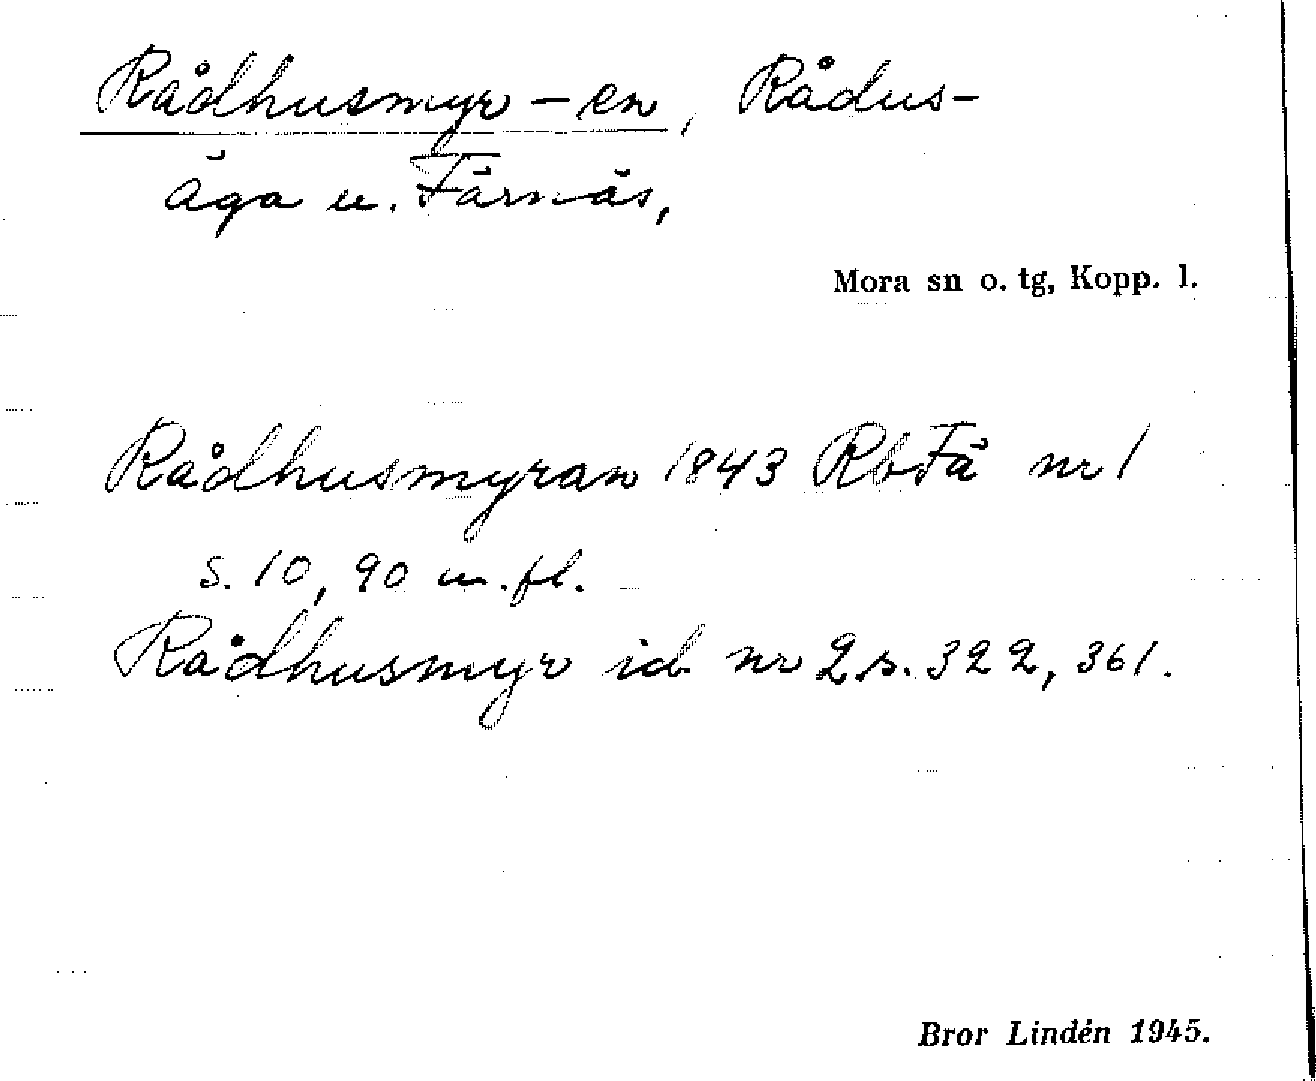 Rådhusmyr – en, Rådus-
äga u. Färnäs,
Mora sn o. tg, Kopp. l.
Rådhusmyran 1843 RbFä nr 1
s. 10, 90 m. fl.
Rådhusmyr id. nr 2 s. 322, 361.
Bror Lindén 1945.